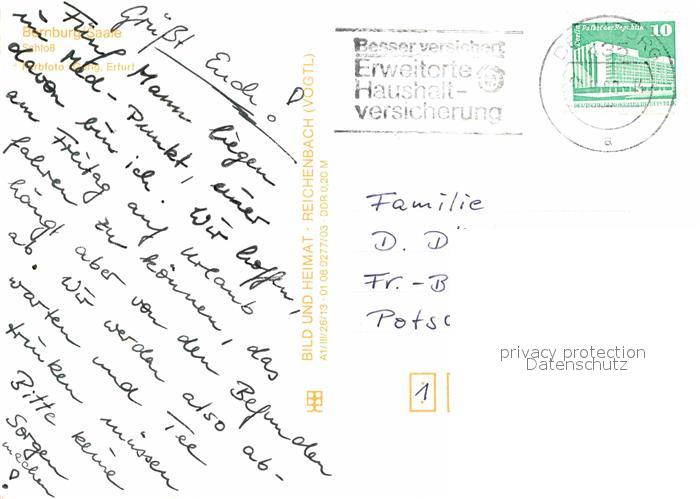 Bernburg Saale
Schloß
Grüßt Euch!
Fünf Mann liegen
im Med-Punkt, einer
davon bin ich. Wir hoffen,
am Freitag auf Urlaub
fahren zu können, das
hängt aber von den Befunden
ab. Wir werden also ab-
warten und Tee
trinken müssen
Bitte keine
Sorgen
machen!
BILD UND HEIMAT · REICHENBACH (VOGTL)
A1/III/26/13 · 01 08 0277/03 DDR 0,20 M
Besser versichert
Erweiterte
Haushalt-
versicherung
Berlin Palast der Republik 10
a
Familie
D. D
Fr.-B
Pots
1
privacy protection
Datenschutz